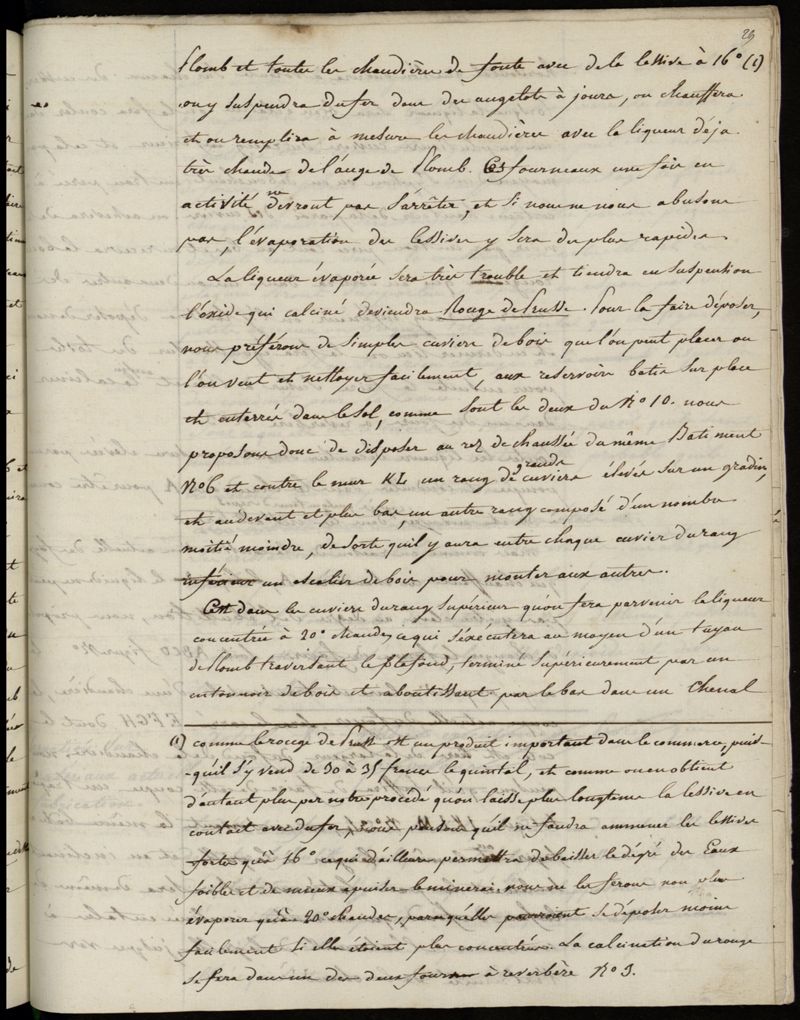 29
Plomb et toutes les chaudières de fonte avec de la lessive à 16° (1)
on y suspendra du fer dans des augelots à jours, on chauffera
et on remplira à mesure les chaudières avec la liqueur déja
très chaude de l'auge de Plomb. Ces fourneaux une fois en
activité ne devront pas s'arrêter, et si nous ne nous abusons
pas, l'évaporation des lessives y sera des plus rapides.
La liqueur évaporée sera très trouble et tiendra en suspension
l'oxide qui calciné deviendra Rouge de Prusse. Pour la faire déposer,
nous préférons de simples cuviers de bois que l'on peut placer où
l'on veut et nettoyer facilement, aux reservoirs batis sur place
et enterrés dans le sol, comme sont les deux du N° 10. nous
proposons donc de disposer au rez de chaussée du même Batiment
N° 6 et contre le mur KL un rang de grands cuviers élevés sur un gradin,
et au devant et plus bas, un autre rang composé d'un nombre
moitié moindre, de sorte qu'il y aura entre chaque cuvier du rang
inférieur un escalier de bois pour monter aux autres.
C'est dans les cuviers du rang supérieur qu'on fera parvenir la liqueur
concentrée à 20° chaude, ce qui s'éxécutera au moyen d'un tuyau
de Plomb traversant le plafond, terminé supérieurement par un
entonnoir de bois et aboutissant par le bas dans un Chenal
(1) comme le rouge de Prusse est un produit important dans le commerce, puis-
qu'il s'y vend de 30 à 35 francs le quintal, et comme on en obtient
d'autant plus par notre procédé qu'on laisse plus longtems la lessive en
contact avec du fer, nous pensons qu'il ne faudra ammener les lessives
fortes qu'à 16° ce qui d'ailleurs permettra de baisser le dégré des Eaux
faibles et de mieux épuiser le minerai. nous ne les ferons non plus
évaporer qu'à 20° chaudes, parcequ'elles pourroient se déposer moins
facilement si elles étoient plus concentrées. La calcination du rouge
se fera dans un des deux fours à reverbère N° 3.